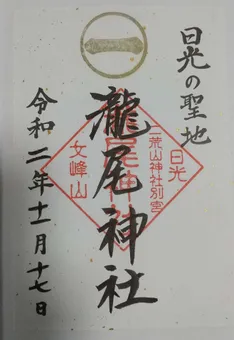 日光の聖地
日光
二荒山神社別宮
瀧尾神社
瀧尾神社
女峰山
令和二年十一月十七日
一